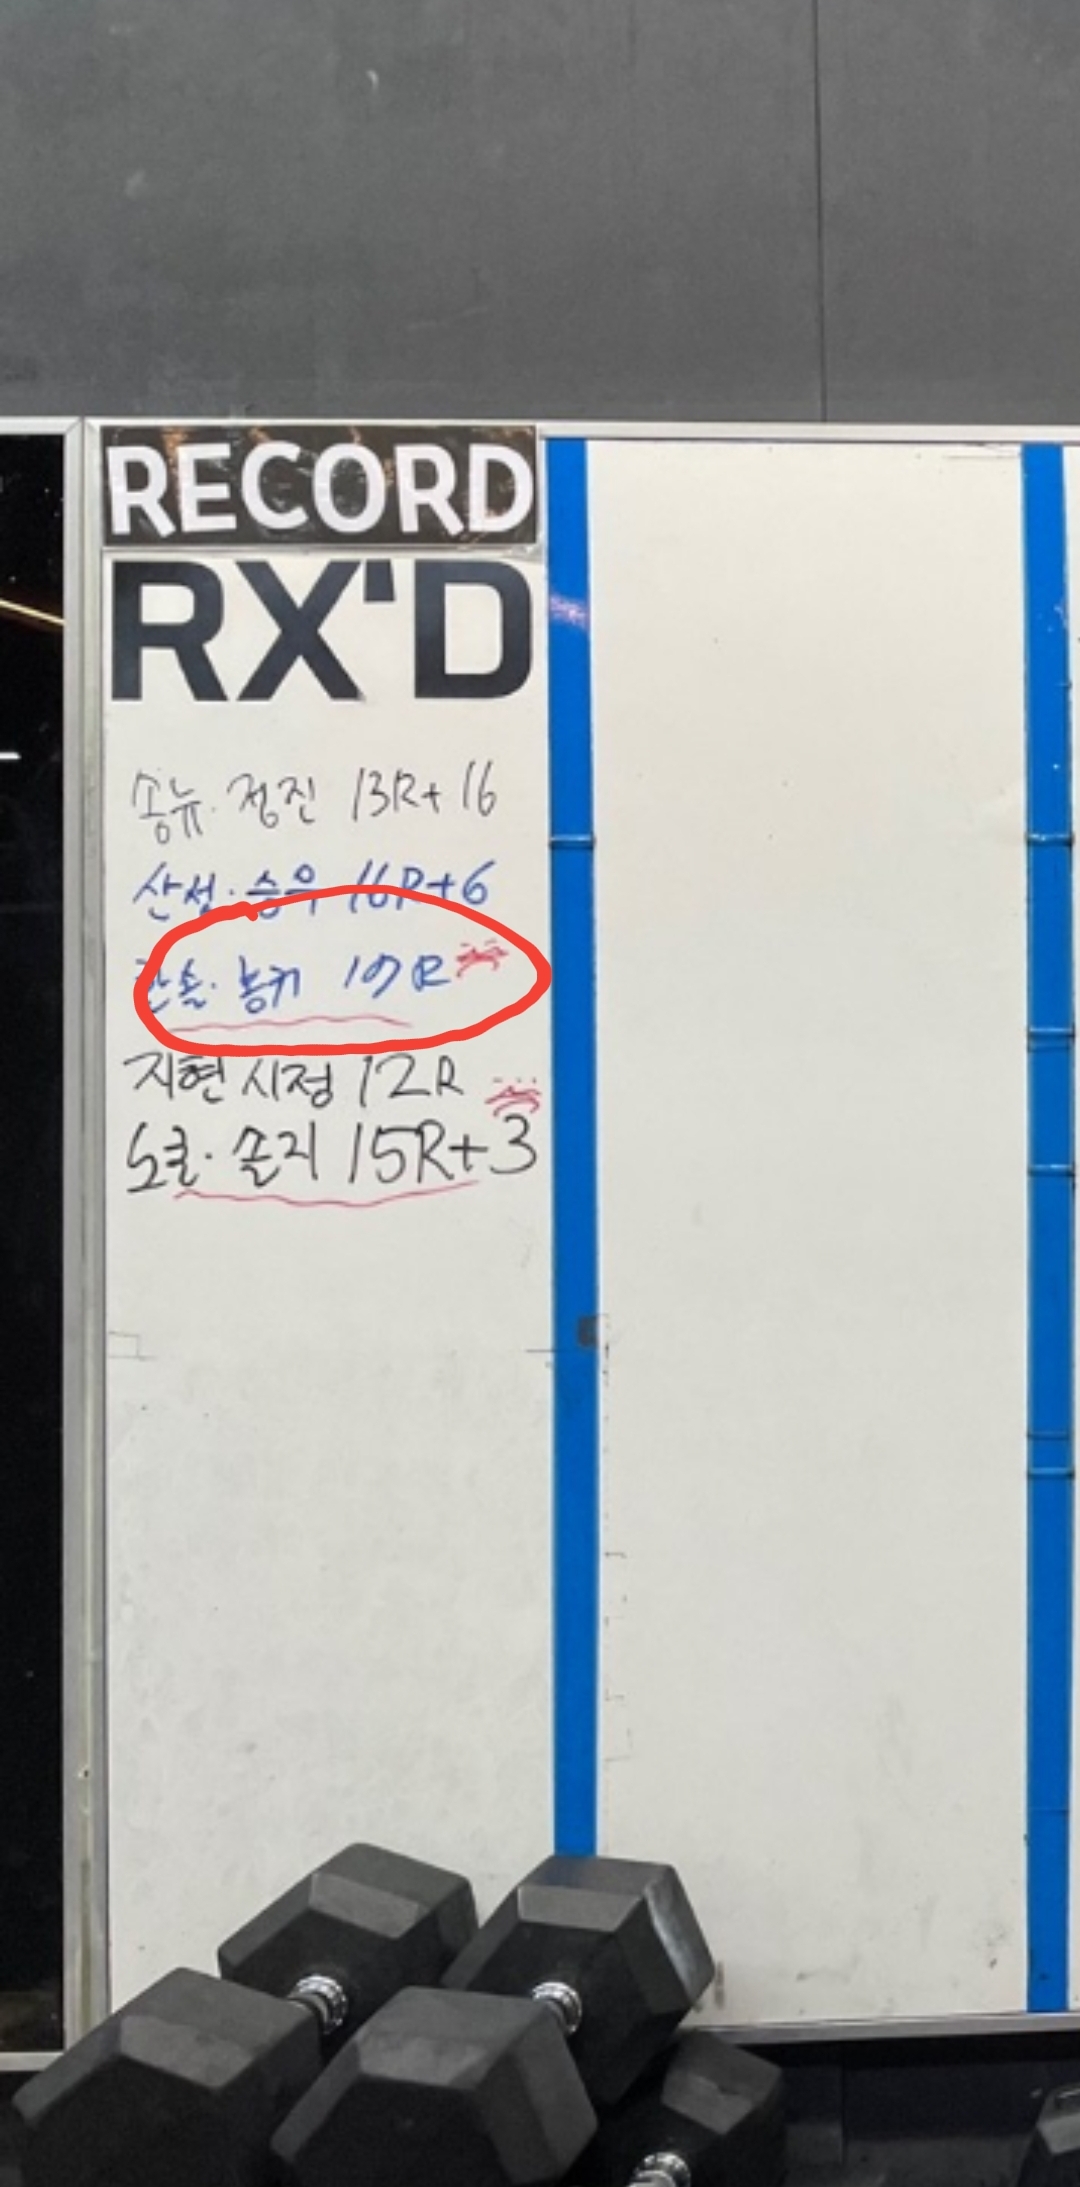 RECORD
RX'D
송뉴·정진 13R+16
산성·승우 16R+6
한솔·봉키 17R
지현 시정 12R
노쿨·솔지 15R+3